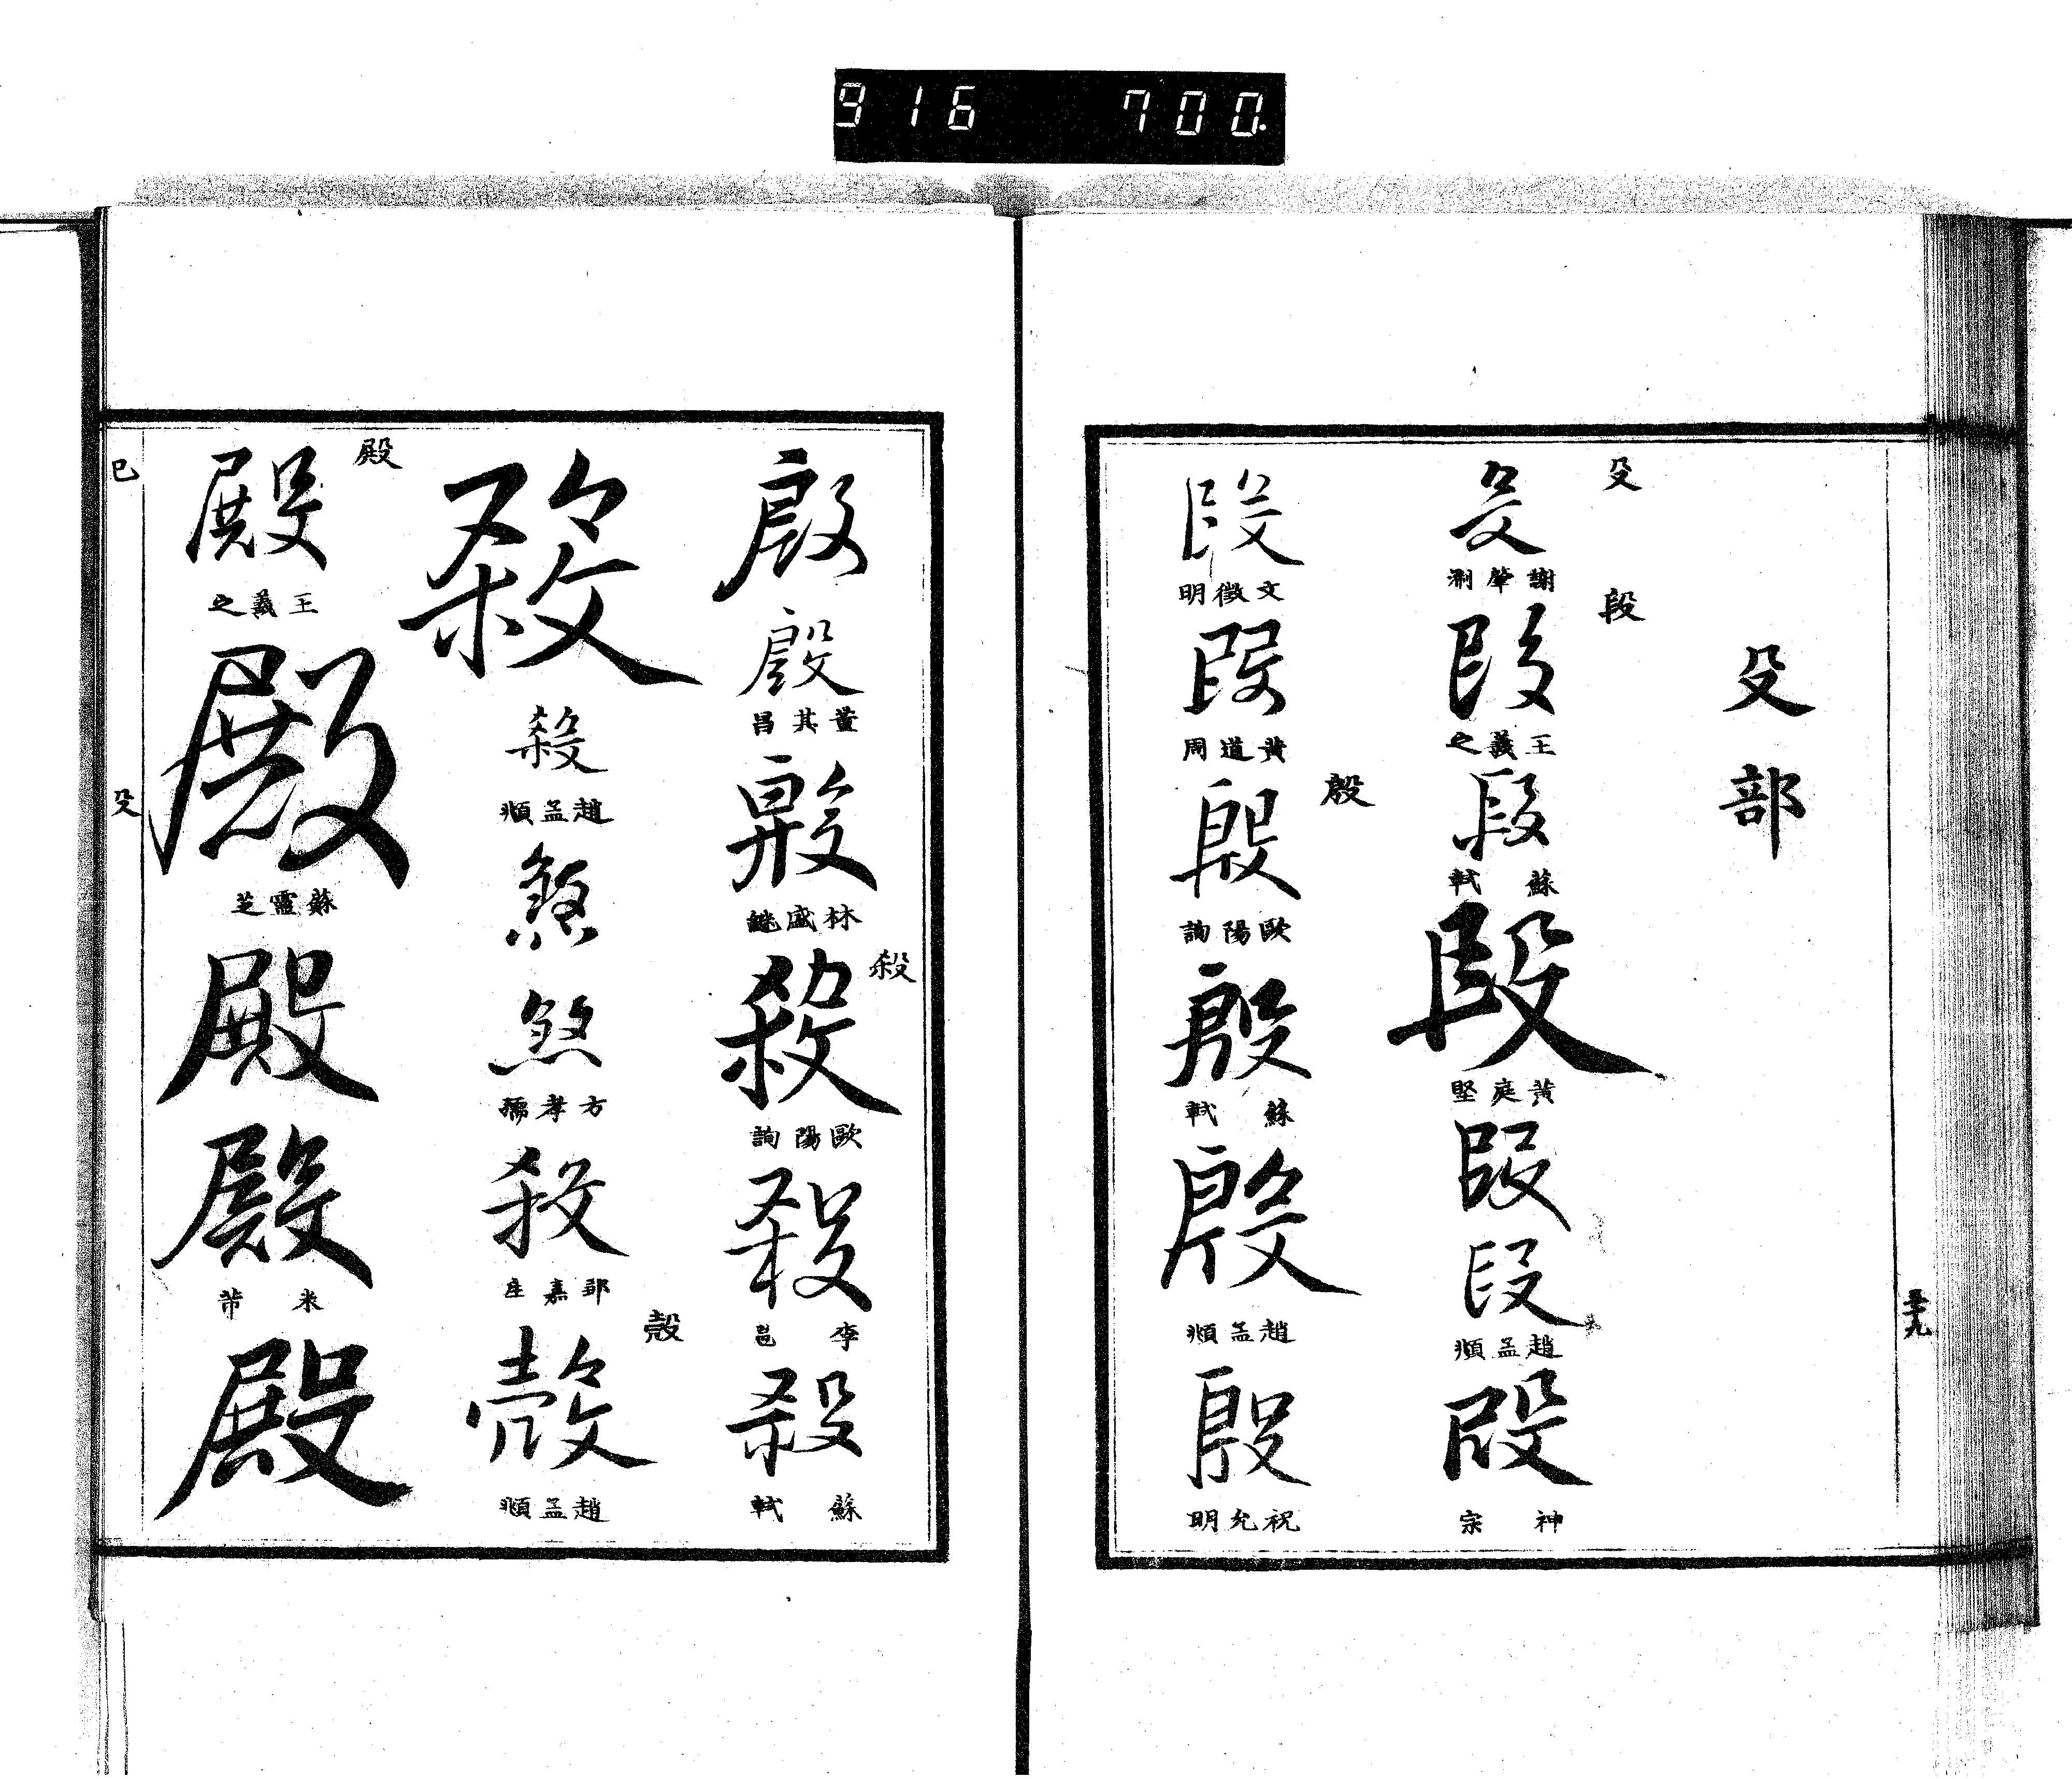 916 700.
殳部
殳
殳
謝肇淛
段
段
王羲之
段
蘇軾
段
黃庭堅
段
段
趙孟頫
段
神宗
段
文徵明
段
黃道周
殷
殷
歐陽詢
殷
蘇軾
殷
趙孟頫
殷
祝允明
五十九
殷
殷
董其昌
殷
林盛
殺
殺
歐陽詢
殺
李邕
殺
蘇軾
殺
殺
趙孟頫
煞
煞
方孝孺
殺
嘉
殼
殼
趙孟頫
殿
殿
王羲之
殿
蘇靈芝
殿
殿
米芾
殿
巳
殳